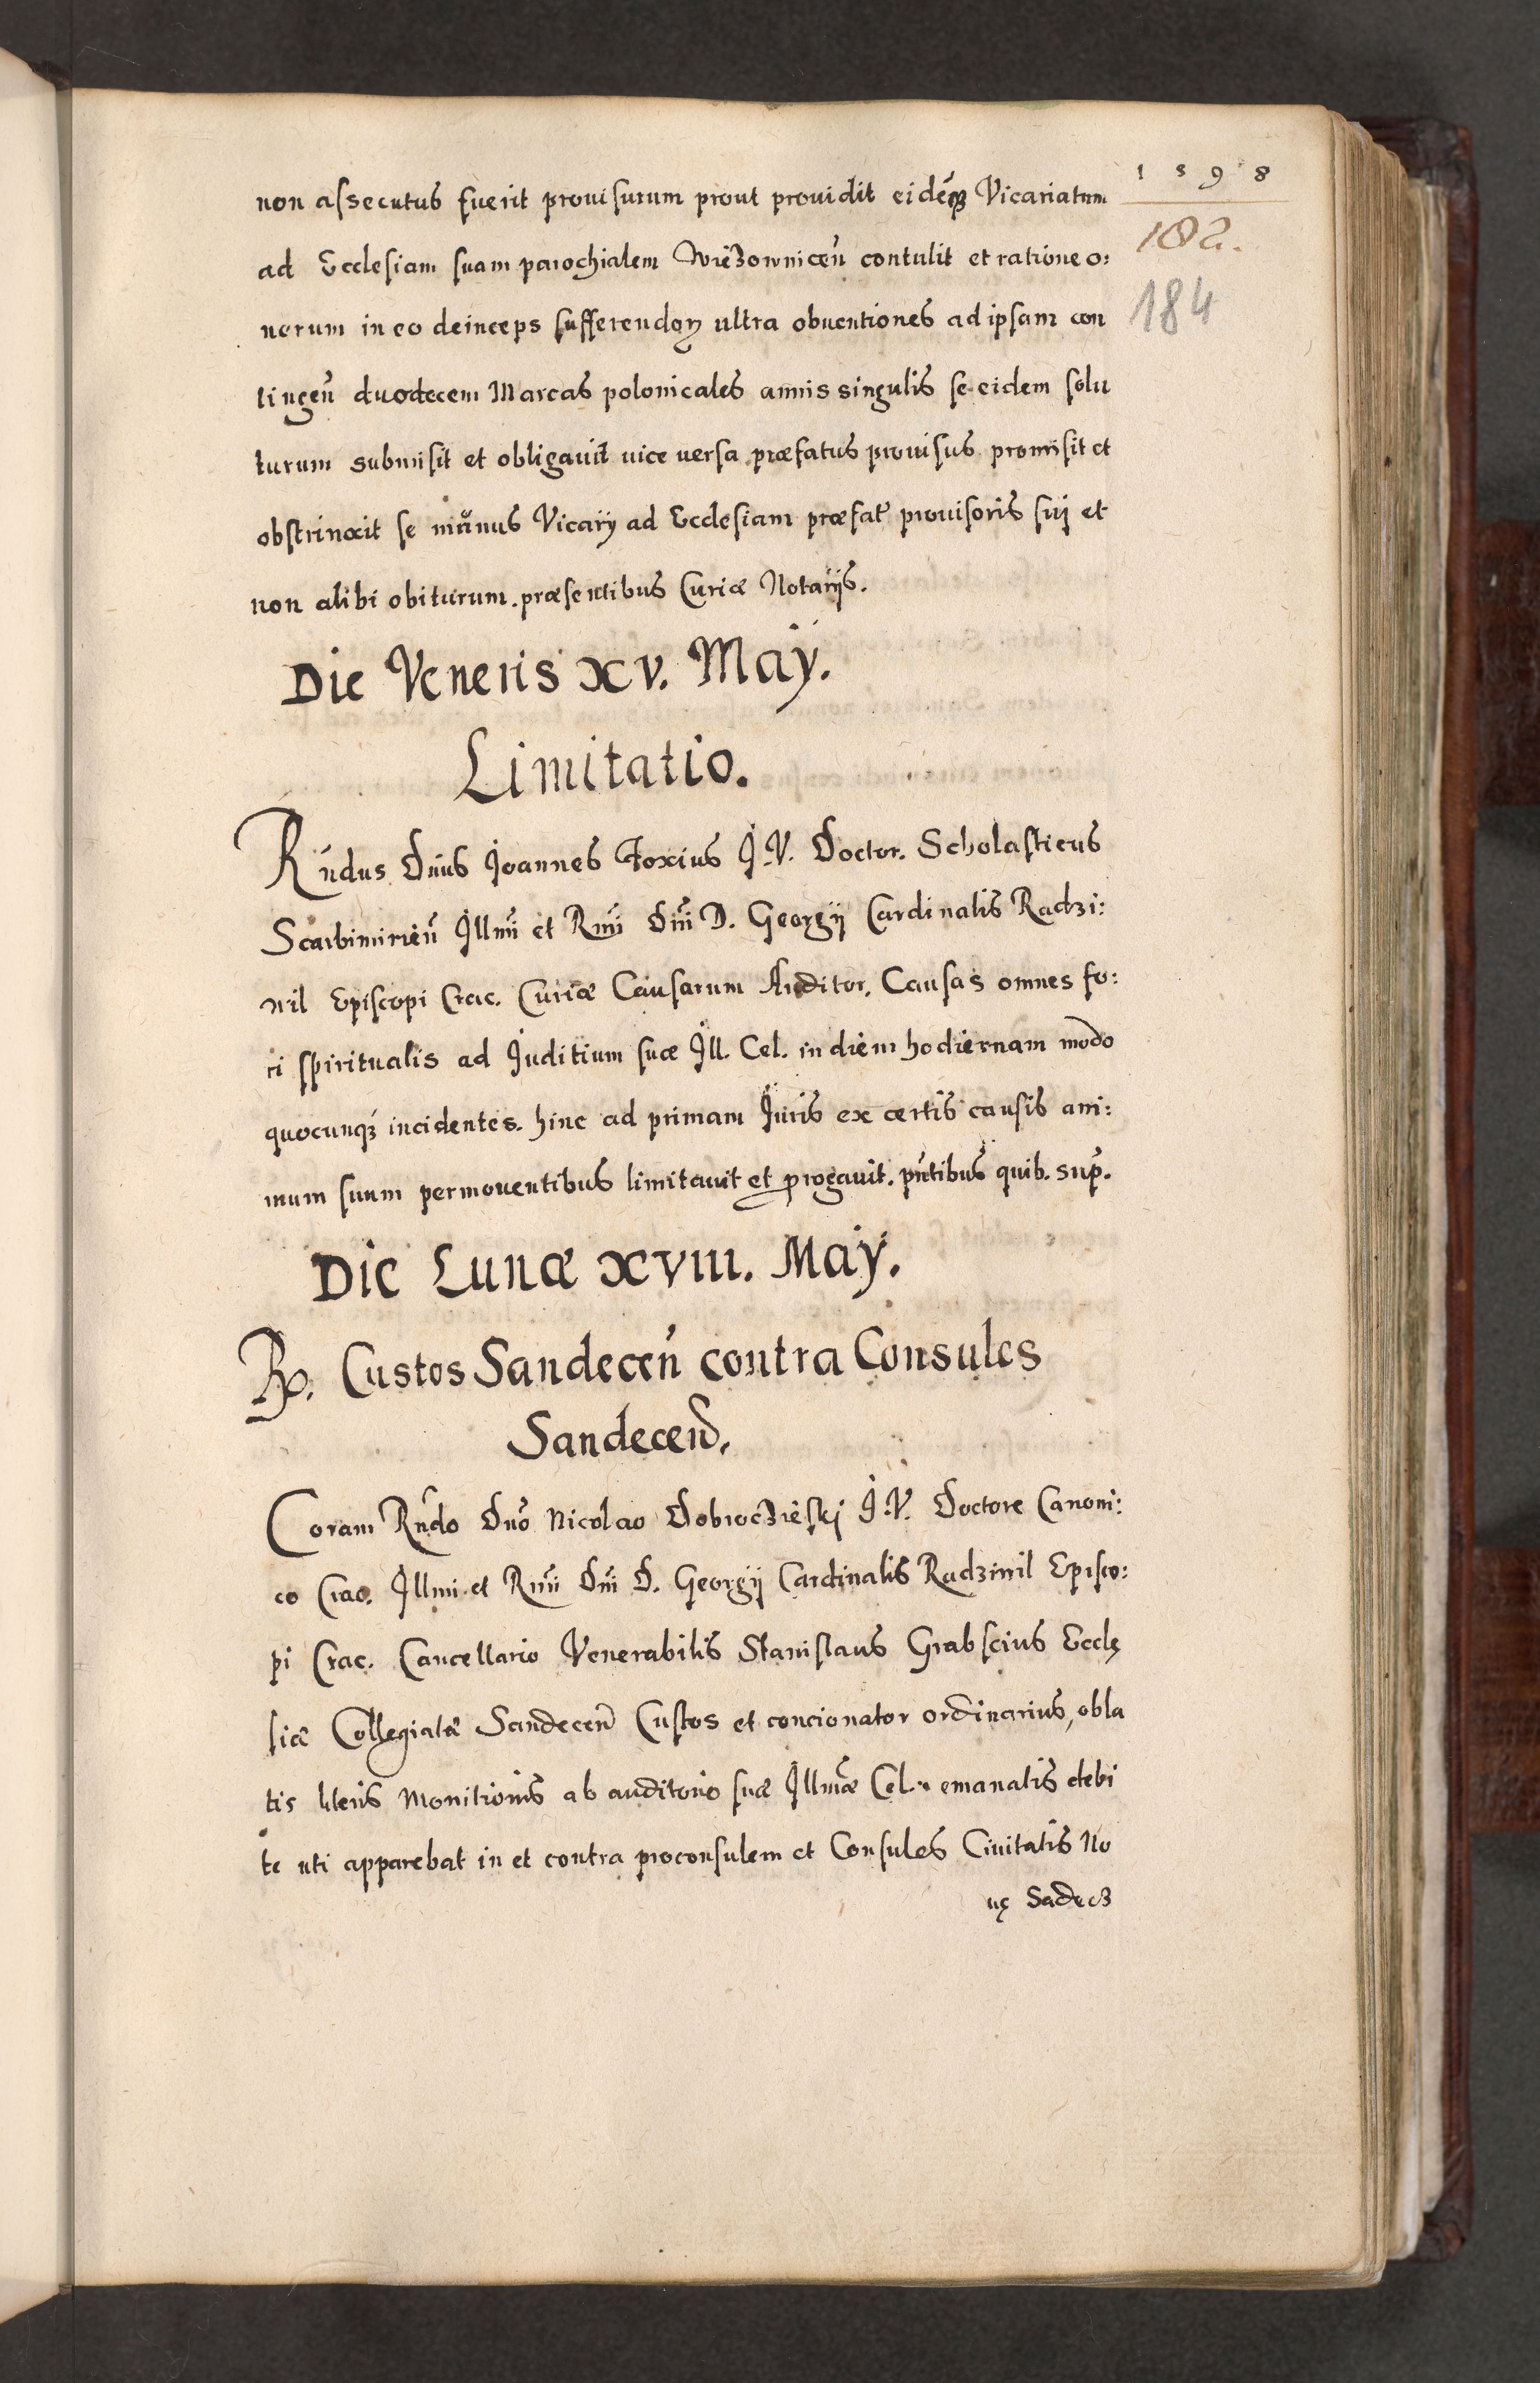 1598
182.
184
non assecutus fuerit prouisurum prout prouidit eidéqȝ Vicariatum
ad Ecclesiam suam parochialem Wieȝowniceñ contulit et ratione o:
nerum in eo deinceps sufferendoꝝ ultra obuentiones ad ipsam con
tingeñ duodecem Marcas polonicales annis singulis se eidem solu
turum submisit et obligauit uice uersa præfatus prouisus promisit et
obstrinxit se mŭnus Vicarÿ ad Ecclesiam præfat̃ prouisoris sui et
non alibi obiturum. præsentibus Curiæ Notarijs.
Die Veneris xv. Maÿ.
Limitatio.
Rñdus Dñus Joannes Foxius J.V. Doctor. Scholasticus
Scarbimirieñ Illm̃i et Rm̃i Dñi D. Georgij Cardinalis Radzi:
uil Episcopi Crac. Curiæ Causarum Auditor. Causas omnes fo:
ri spiritualis ad Juditium suæ Ill. Cel. in diem hodiernam modo
quocunqȝ incidentes. hinc ad primam Juris ex certis causis ani:
mum suum permouentibus limitauit et ꝓrogauit. pñtibus quib. sup̃.
Die Lunæ xviii. Maÿ.
Rx. Custos Sandeceñ contra Consules
Sandeceñ.
Coram Rñdo Dño Nicolao Dobrocȝieskj J.V. Doctore Canoni:
co Crac. Illmi et Rm̃i Dñi D. Georgij Cardinalis Radziuil Episco:
pi Crac. Cancellario Venerabilis Stanislaus Grabscius Ecclę
siæ Collegiatæ Sandeceñ Custos et concionator ordinarius, obla
tis literis Monitionis ab auditorio suæ Illmæ Cel. emanatis debi
te uti apparebat in et contra proconsulem et Consules Ciuitatis No
uę Sadecȝ